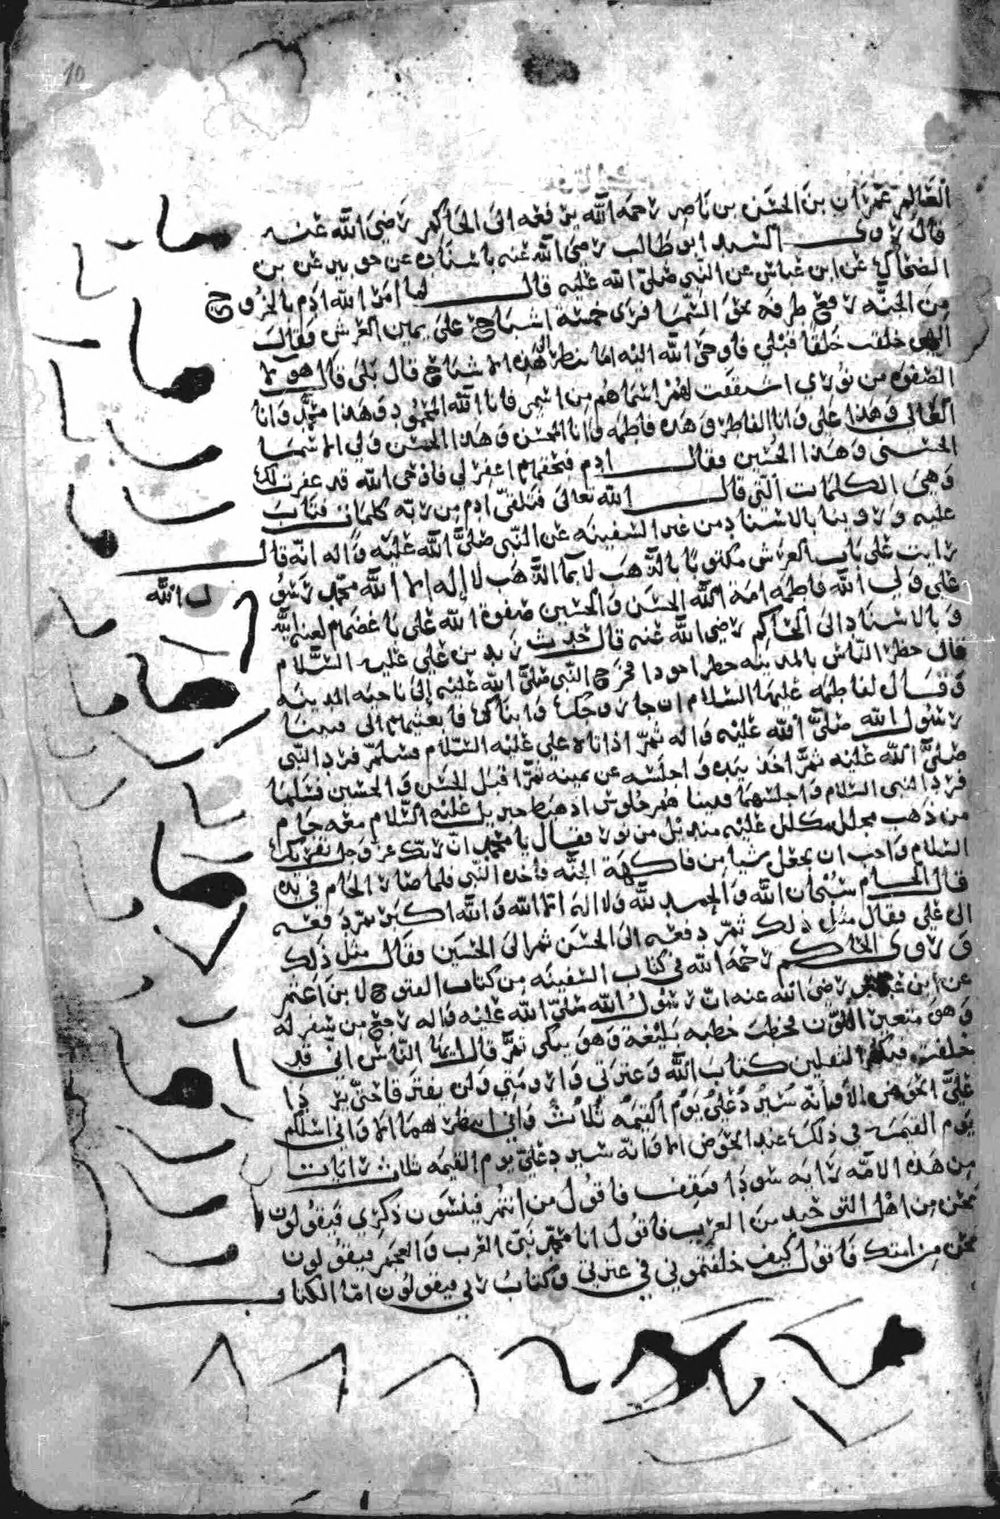 العالم عمران بن الحسن بن ناصر رحمه الله يرفعه الى الحاكم رضي الله عنه
قال روى السيد ابو طالب رضي الله عنه باسناده عن جويبر عن
الضحاك عن ابن عباس عن النبي صلى الله عليه قال لما امر الله ادم بالخروج
من الجنه رفع طرفه نحو السما فرى خمسة اشباح على يمين العرش فقال
الهي خلقت خلقا قبلي فاوحى الله اليه اما تنظر الى هذه الاشباح قال بلى قال هولا
الصفوه من نوري اشتققت لهم اسماهم من اسمي فانا الله المحمود وهذا محمد وانا
العالي وهذا علي وانا الفاطر وهذه فاطمه وانا المحسن وهذا الحسن ولي الاسما
الحسنى وهذا الحسين فقال ادم فبحقهم اغفر لي فاوحى الله قد غفرت لك
وهي الكلمات التي قال الله تعالى فتلقى ادم من ربه كلمات فتاب
عليه وروينا بالاسناد من غير السفينه عن النبي صلى الله عليه واله انه قال
رايت على باب العرش مكتوبا بالذهب لا بما الذهب لا إله الا الله محمد رسول الله
علي ولي الله فاطمه امة الله الحسن والحسين صفوة الله على باغضهم لعنه الله
وبالاسناد الى الحاكم رضي الله عنه قال حديث زيد بن علي عليه السلام
قال مطر الناس بالمدينه مطرا جودا فخرج النبي صلى الله عليه الى ناحيه المدينه
وقال لفاطمه عليها السلام ان جا زوجك وابناك فابعثيهم الي فبينا
رسول الله صلى الله عليه واله ثم اذ اتاه علي عليه السلام فسلم فرد النبي
صلى الله عليه ثم اخذ بيده واجلسه عن يمينه ثم اقبل الحسن والحسين فسلما
فرد النبي السلام واجلسهما فبينا هم جلوس اذ هبط جبريل عليه السلام معه جام
من ذهب مجلل مكلل عليه منديل من نور فقال يا محمد ان ربك عز وجل يقرئك
السلام واحب ان يجعل شيا من فاكهة الجنه فاخذه النبي فلما صار الجام في يده
قال الجام سبحان الله والحمد لله ولا اله الا الله والله اكبر ثم دفعه
الى علي فقال مثل ذلك ثم دفعه الى الحسن ثم الى الحسين فقال مثل ذلك
وروى الحاكم رحمه الله في كتاب السفينه من كتاب الفتوح لابن اعثم
عن ابن عباس رضي الله عنه ان رسول الله صلى الله عليه واله رجع من سفر له
وهو متغير اللون فخطب خطبه بليغة وهو يبكي ثم قال ايها الناس اني قد
خلفت فيكم الثقلين كتاب الله وعترتي وارومتي ولن يفترقا حتى يردا
علي الحوض الا وانه سيرد علي يوم القيمه ثلاث واني انتظرهما الا واني اسالكم
يوم القيمه في ذلك عند الحوض الا وانه سيرد علي يوم القيمه ثلاث رايات
من هذه الامه رايه سودا فتقف فاقول من انتم فينسون ذكري فيقولون
نحن من اهل التوحيد من العرب فاقول انا محمد نبي العرب والعجم فيقولون
نحن من امتك فاقول كيف خلفتموني في عترتي وكتاب ربي فيقولون اما الكتاب